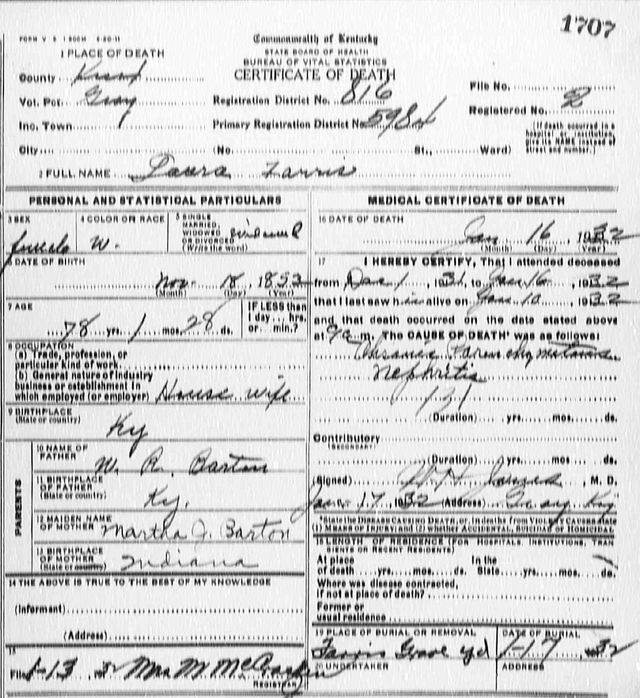 1707
FORM V S
Commonwealth of Kentucky
STATE BOARD OF HEALTH
BUREAU OF VITAL STATISTICS
CERTIFICATE OF DEATH
1 PLACE OF DEATH
County Knox
Vot. Pct. Gray
Inc. Town
City (No. St., Ward)
Registration District No. 816
Primary Registration District No.
File No.
Registered No. 2
(If death occurred in a
hospital or institution,
give its NAME instead of
street and number.)
2 FULL NAME Laura Farris
PERSONAL AND STATISTICAL PARTICULARS
3 SEX female
4 COLOR OR RACE W.
5 SINGLE
MARRIED,
WIDOWED
OR DIVORCED
(Write the word)
6 DATE OF BIRTH
Nov. 18, 1853
(Month) (Day) (Year)
7 AGE
78 yrs. 1 mos. 28 ds.
IF LESS than
1 day... hrs.
or ... min.?
8 OCCUPATION
(a) Trade, profession, or
particular kind of work
(b) General nature of industry
business or establishment in
which employed (or employer) House wife
9 BIRTHPLACE
(State or country) Ky
PARENTS
10 NAME OF
FATHER W. R. Barton
11 BIRTHPLACE
OF FATHER
(State or country) Ky.
12 MAIDEN NAME
OF MOTHER Martha J. Barton
13 BIRTHPLACE
OF MOTHER
(State or country) Indiana
14 THE ABOVE IS TRUE TO THE BEST OF MY KNOWLEDGE
(Informant)
(Address)
15
Filed 1-13, 32 Mrs M McCracken
REGISTRAR
MEDICAL CERTIFICATE OF DEATH
16 DATE OF DEATH
Jan 16, 1932
(Month) (Day) (Year)
17 I HEREBY CERTIFY, That I attended deceased
from Dec 1, 1931, to Jan 16, 1932
that I last saw h alive on Jan 10, 1932
and that death occurred on the date stated above
at 9 a m. The CAUSE OF DEATH* was as follows:
Chronic Parenchymatous
Nephritis
131
(Duration) yrs. mos. ds.
Contributory
(SECONDARY)
(Duration) yrs. mos. ds.
(Signed) M. D.
Jan 17, 1932 (Address) Gray Ky
*State the DISEASE CAUSING DEATH, or, in deaths from VIOLENT CAUSES state
(1) MEANS OF INJURY; and (2) whether ACCIDENTAL, SUICIDAL or HOMICIDAL
18 LENGTH OF RESIDENCE (FOR HOSPITALS, INSTITUTIONS, TRANSIENTS
OR RECENT RESIDENTS)
At place In the
of death yrs. mos. ds. State yrs. mos. ds.
Where was disease contracted,
if not at place of death?
Former or
usual residence
19 PLACE OF BURIAL OR REMOVAL
Farris Grave yd
DATE OF BURIAL
1-17 32
20 UNDERTAKER
ADDRESS